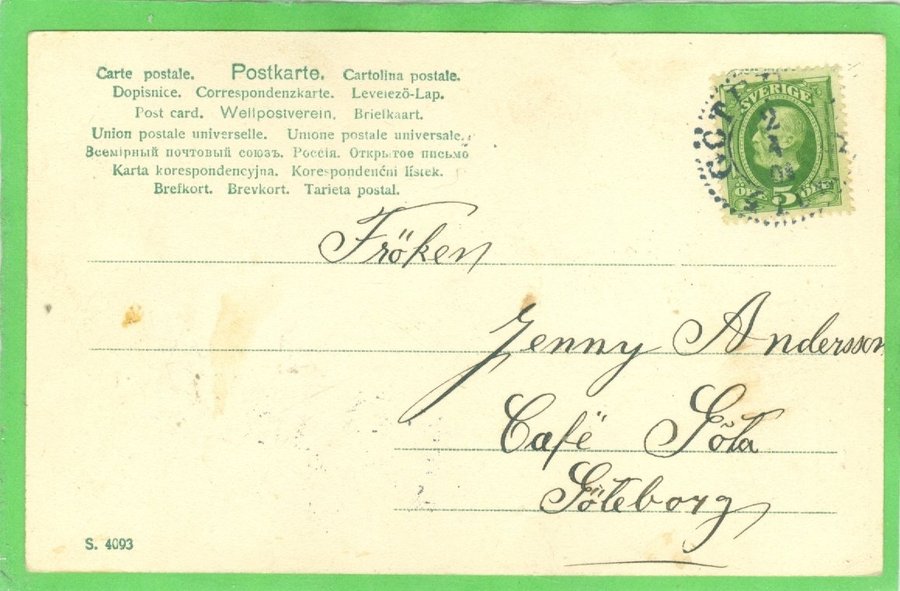 Carte postale. Postkarte. Cartolina postale.
Dopisnice. Correspondenzkarte. Levelező-Lap.
Post card. Weltpostverein. Briefkaart.
Union postale universelle. Unione postale universale.
Всемірный почтовый союзъ. Россія. Открытое письмо
Karta korespondencyjna. Korespondenční lístek.
Brefkort. Brevkort. Tarieta postal.
SVERIGE
5
Fröken
Jenny Andersson
Café Göta
Göteborg
S. 4093